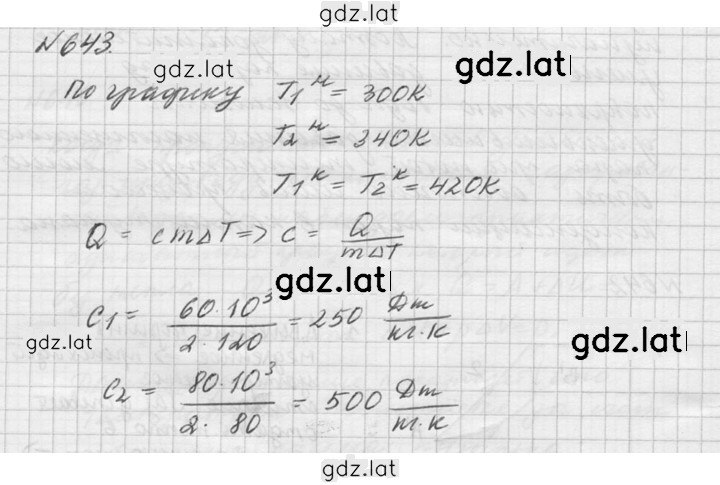 gdz.lat
N643.
gdz.lat gdz.lat
По графику T₁ᴴ = 300К
T₂ᴴ = 340К
T₁ᴷ = T₂ᴷ = 420К
Q = cmΔT => c = Q/mΔT
gdz.lat
c₁ = 60·10³/2·120 = 250 Дж/кг·К
gdz.lat gdz.lat
c₂ = 80·10³/2·80 = 500 Дж/кг·К
gdz.lat